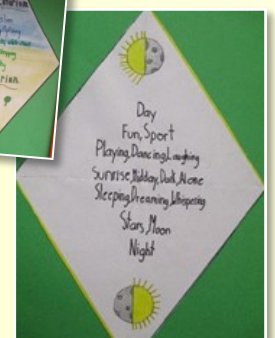 Day
Fun, Sport
Playing, Dancing, Laughing
Sunrise, Midday, Dark, Alone
Sleeping, Dreaming, Whispering
Stars, Moon
Night